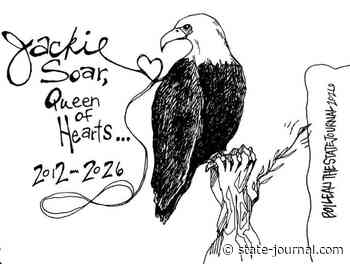 Jackie
Soar,
Queen
of
Hearts...
2012 – 2026
BOILEAU THE STATE JOURNAL 2026
© state-journal.com